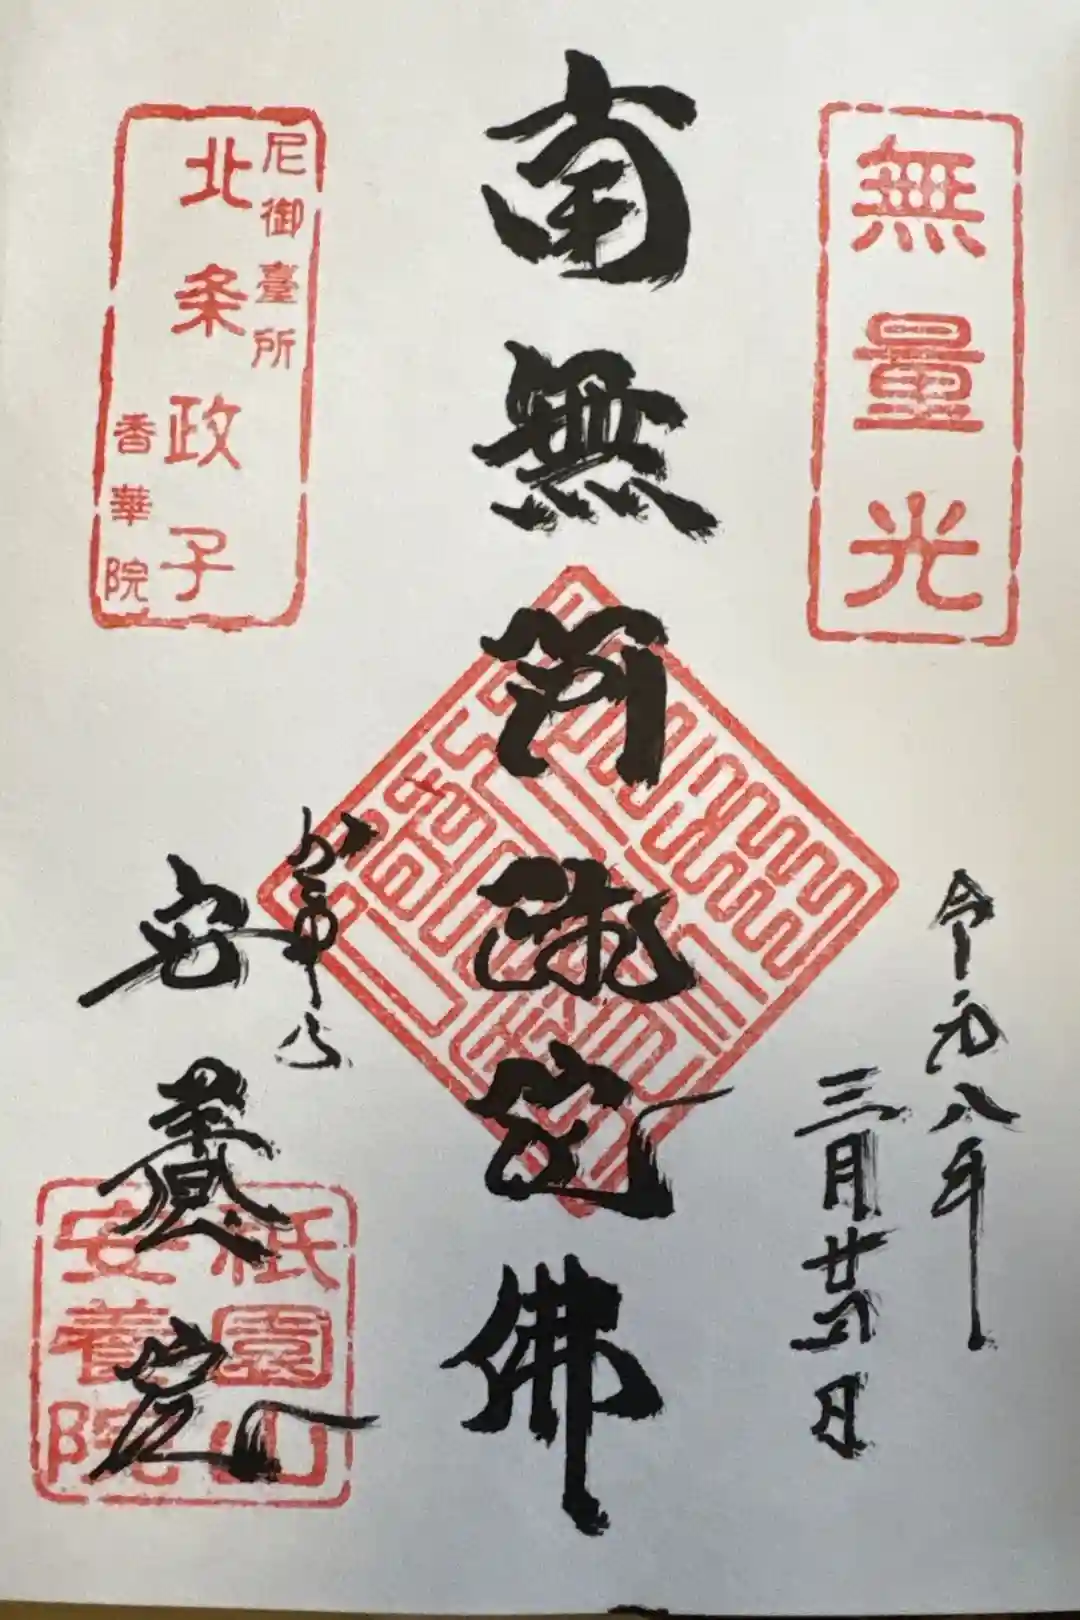 無量光
令和八年
三月廿
日
南無阿弥陀佛
尼御臺所
北条政子
香華院
安養院
祇園山
安養院